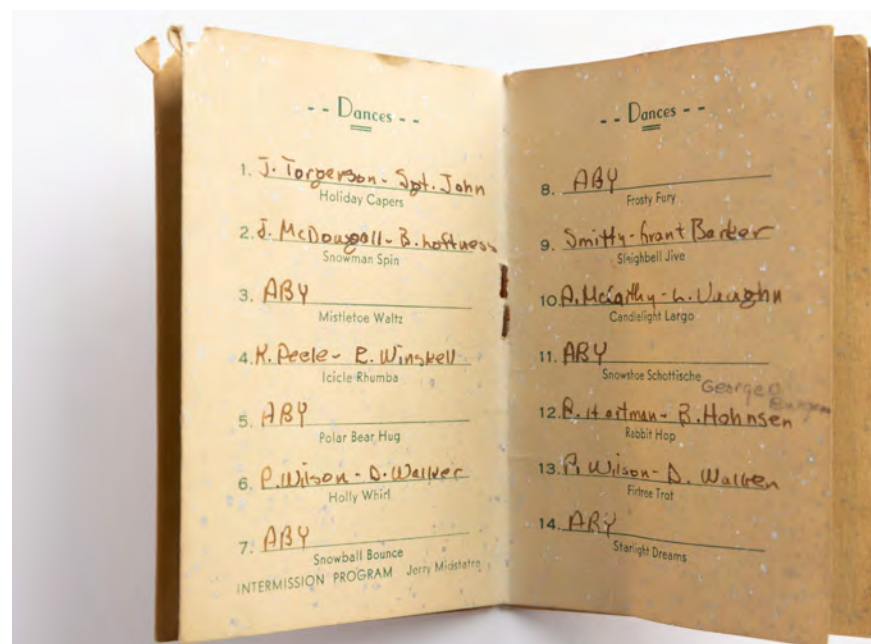 - - Dances - -
1. J. Torgerson - Sgt. John
Holiday Capers
2. J. McDougall - B. Loftness
Snowman Spin
3. ABY
Mistletoe Waltz
4. K. Peele - E. Winskell
Icicle Rhumba
5. ABY
Polar Bear Hug
6. P. Wilson - D. Walker
Holly Whirl
7. ABY
Snowball Bounce
INTERMISSION PROGRAM Jerry
- - Dances - -
8. ABY
Frosty Fury
9. Smitty - Grant Barker
Sleighbell Jive
10. A. McCarthy - L. Vaughn
Candlelight Largo
11. ABY
Snowshoe Schottische
George
12. Hartman - B. Hohnsen
Rabbit Hop
13. P. Wilson - D. Walker
Firtree Trot
14. ABY
Starlight Dreams